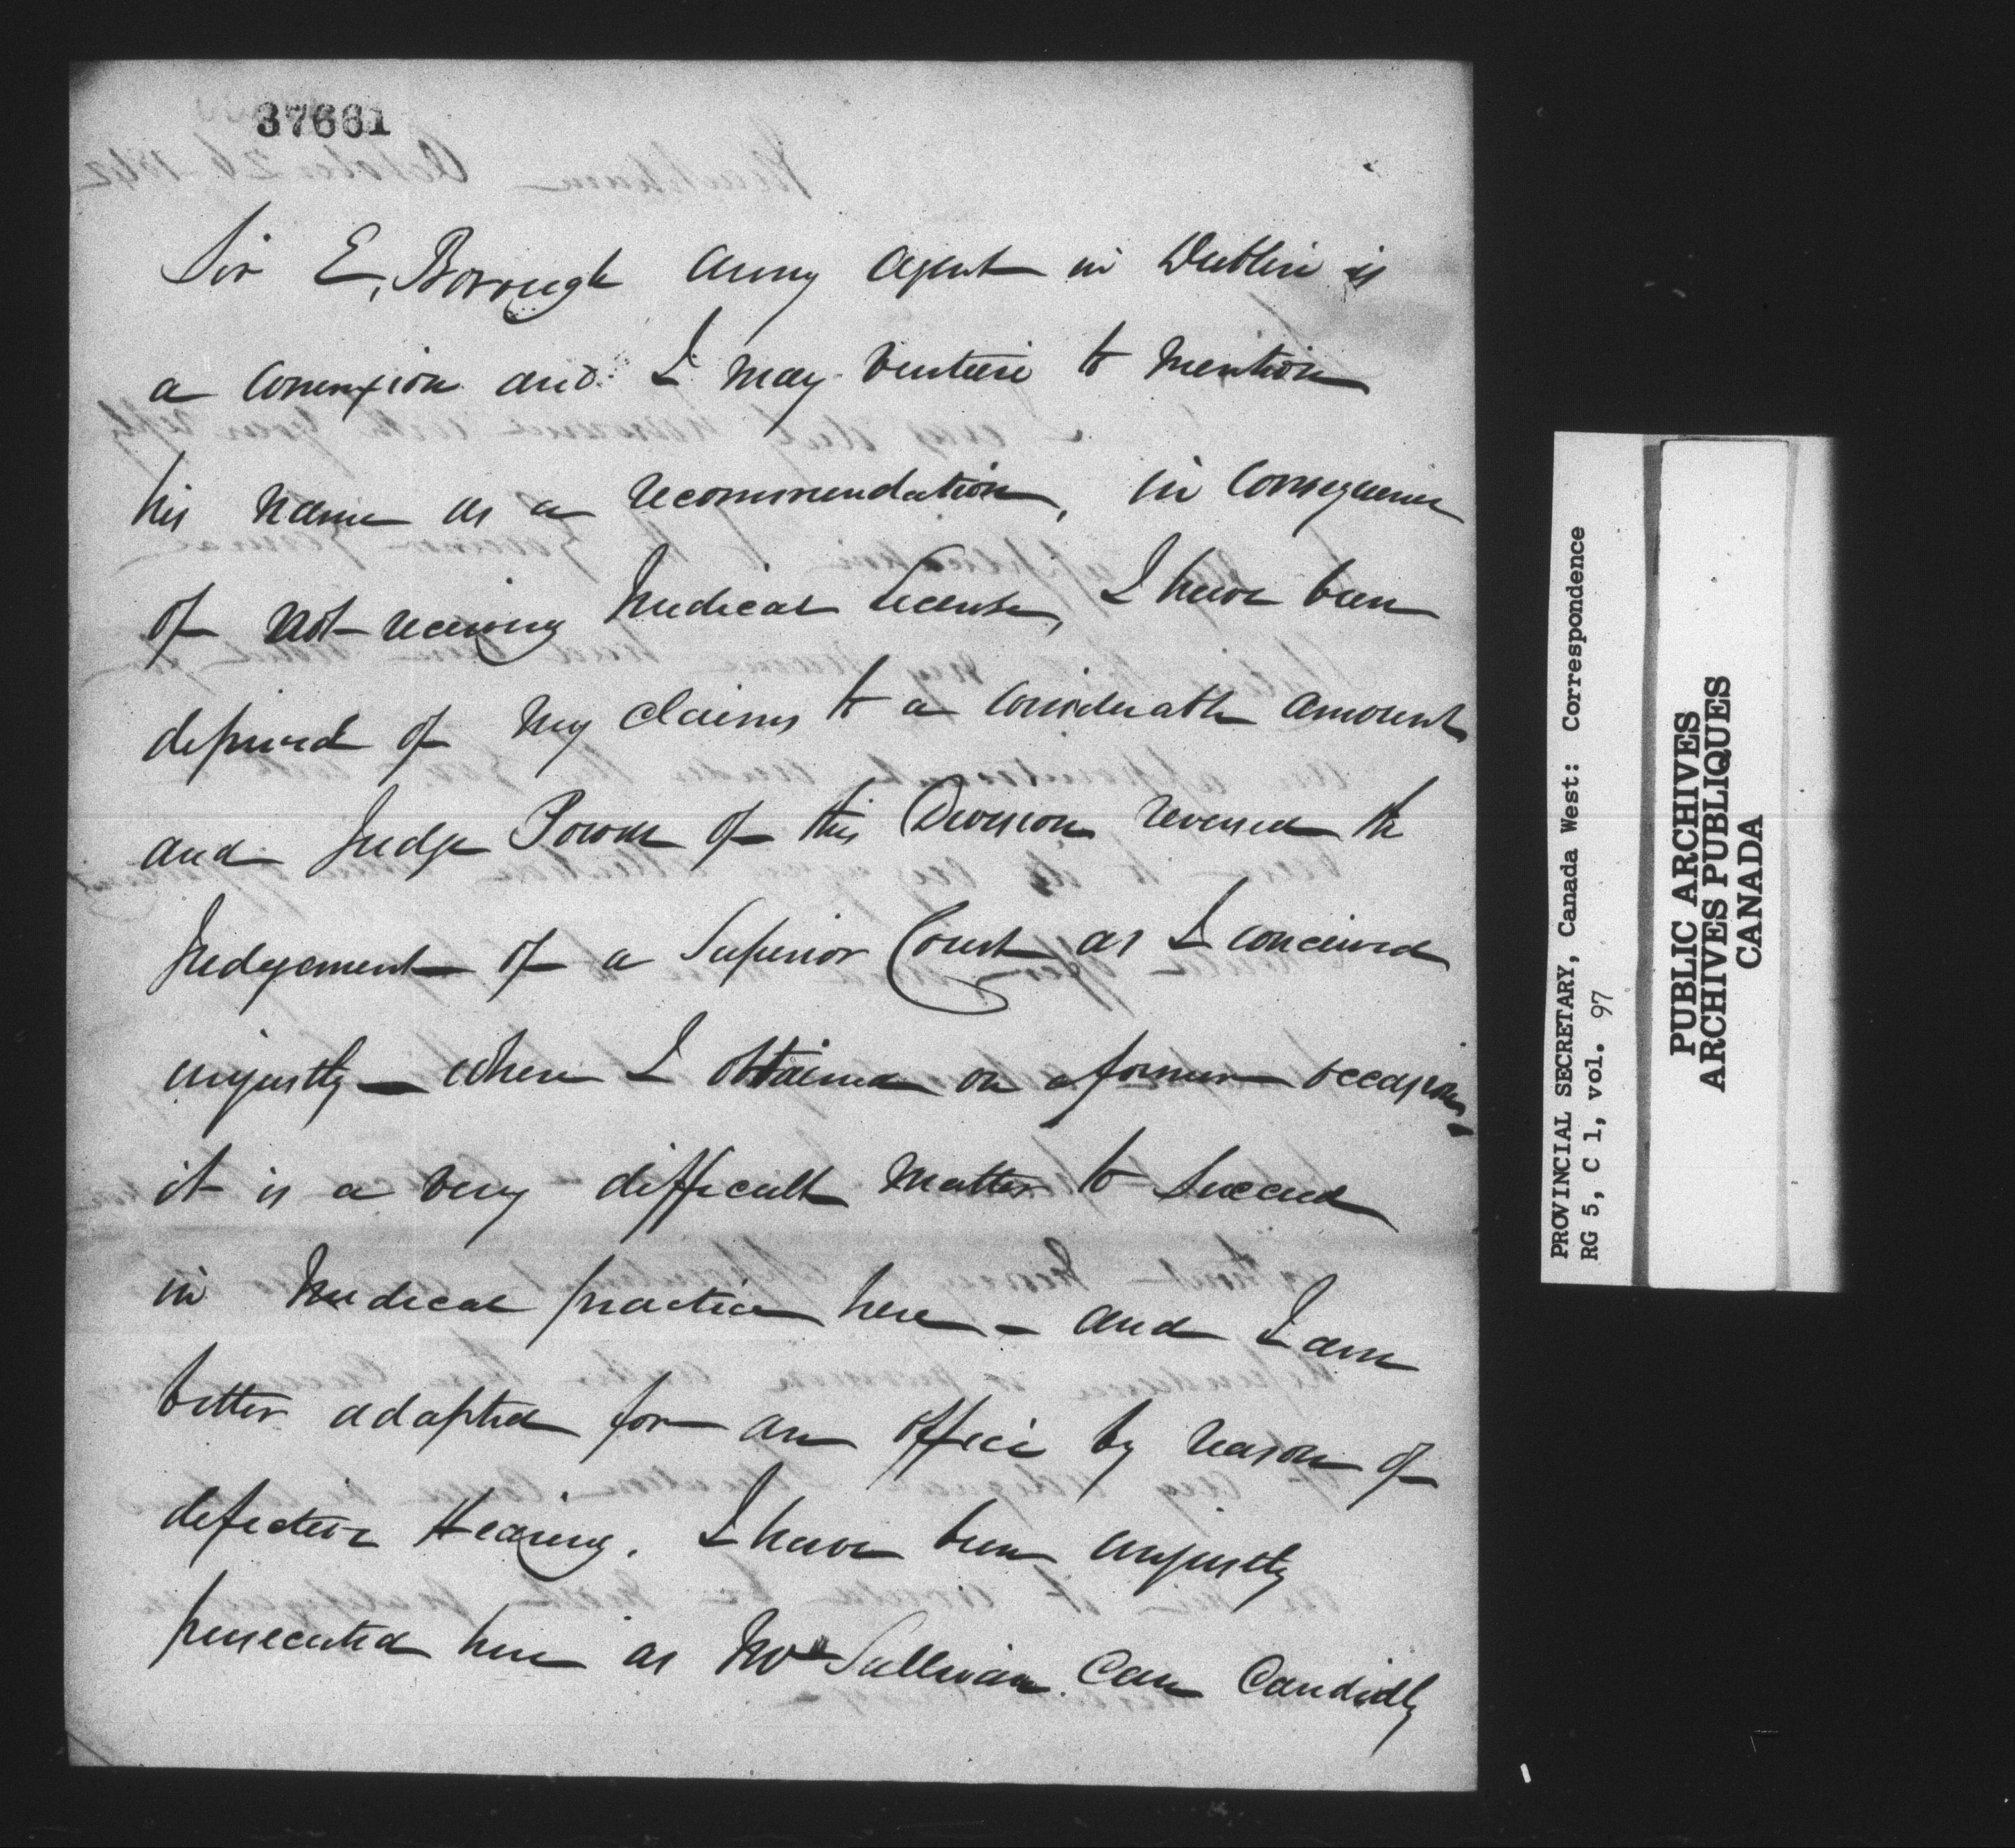 37661
Sir E. Borough Army Agent in Dublin is
a Connexion and I may venture to mention
his name as a recommendation, in consequence
of not receiving Medical License, I have been
deprived of my claims to a considerable amount
and Judge Power of this Division reversed the
Judgement of a Superior Court as I conceived
unjustly — where I obtained on a former occasion,
it is a very difficult matter to succeed
in Medical practice here — and I am
better adapted for an office by reason of
defective Hearing. I have been unjustly
persecuted here as Mr Sullivan Can Candidly
PROVINCIAL SECRETARY, Canada West: Correspondence
RG 5, C 1, vol. 97
PUBLIC ARCHIVES
ARCHIVES PUBLIQUES
CANADA